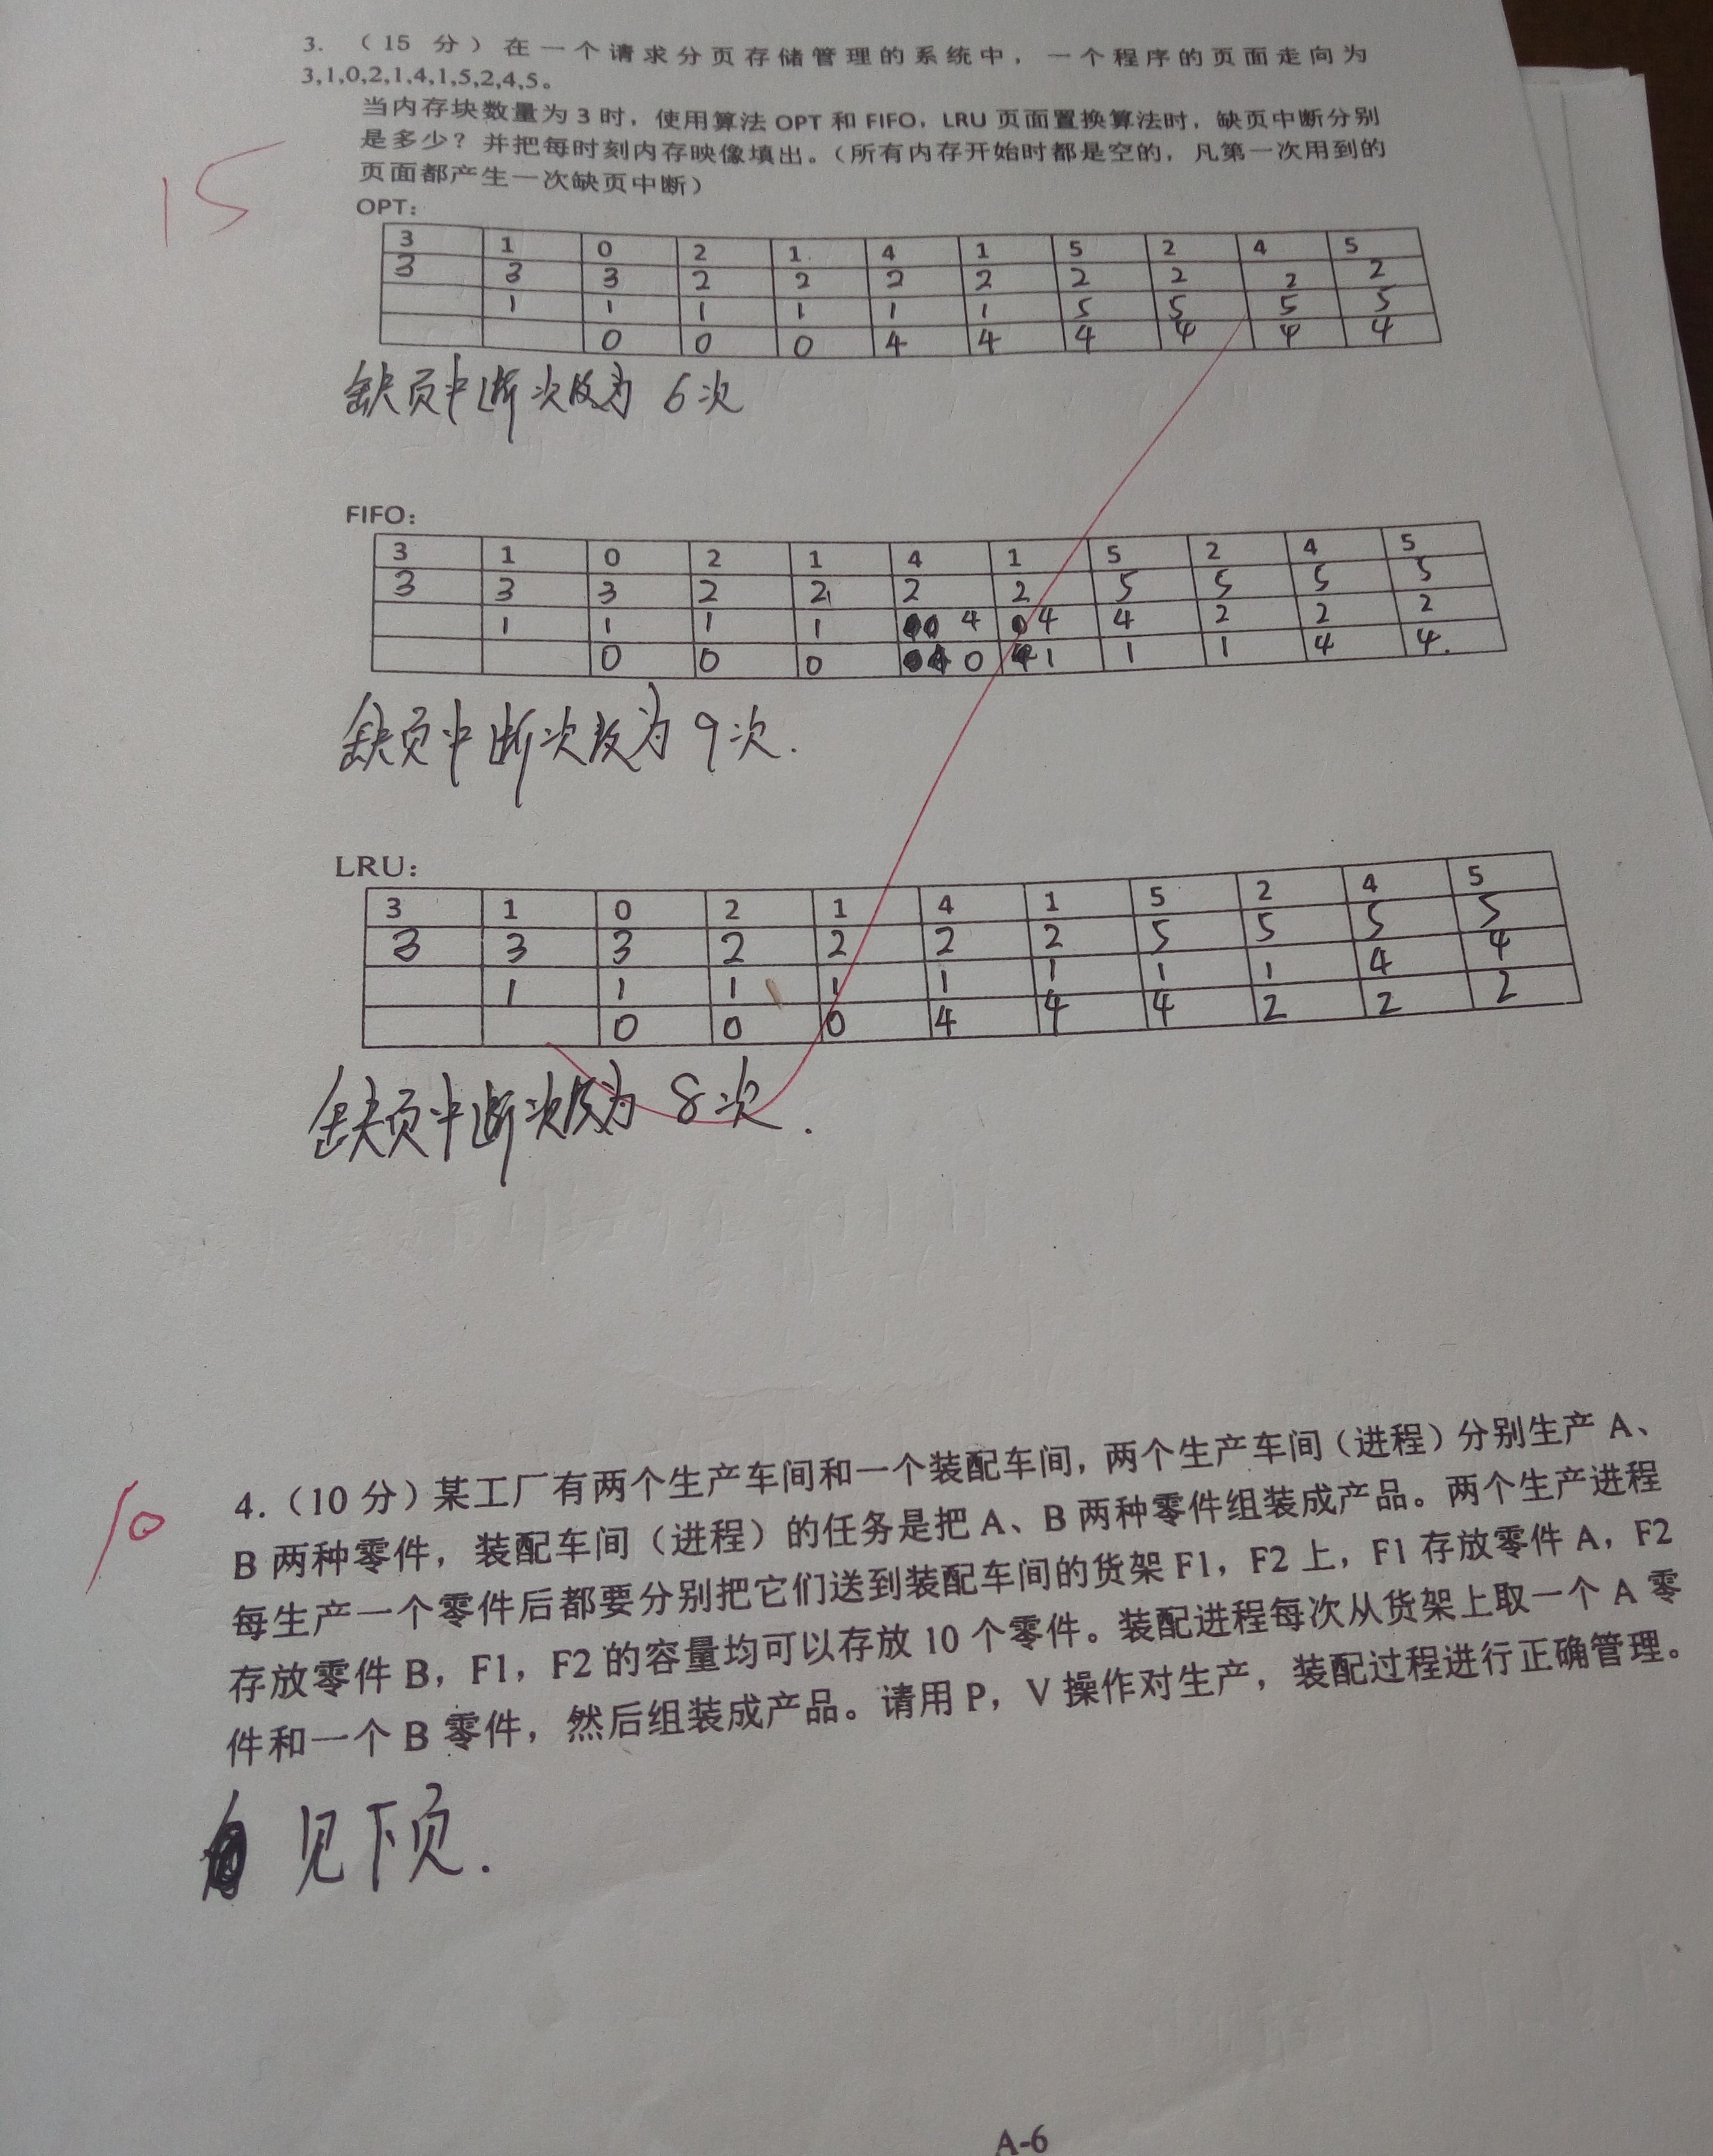 3. （15 分）在一个请求分页存储管理的系统中，一个程序的页面走向为
3,1,0,2,1,4,1,5,2,4,5。
当内存块数量为 3 时，使用算法 OPT 和 FIFO，LRU 页面置换算法时，缺页中断分别
是多少？并把每时刻内存映像填出。（所有内存开始时都是空的，凡第一次用到的
页面都产生一次缺页中断）
15
OPT：
3 1 0 2 1 4 1 5 2 4 5
3 3 3 2 2 2 2 2 2 2 2
1 1 1 1 1 1 5 5 5 5
0 0 0 4 4 4 4 4 4
缺页中断次数为 6次
FIFO：
3 1 0 2 1 4 1 5 2 4 5
3 3 3 2 2 2 2 5 5 5 5
1 1 1 1 4 4 4 2 2 2
0 0 0 0 1 1 1 4 4.
缺页中断次数为 9次.
LRU：
3 1 0 2 1 4 1 5 2 4 5
3 3 3 2 2 2 2 5 5 5 5
1 1 1 1 1 1 1 1 4 4
0 0 0 4 4 4 2 2 2
缺页中断次数为 8次.
10
4.（10 分）某工厂有两个生产车间和一个装配车间，两个生产车间（进程）分别生产 A、
B 两种零件，装配车间（进程）的任务是把 A、B 两种零件组装成产品。两个生产进程
每生产一个零件后都要分别把它们送到装配车间的货架 F1，F2 上，F1 存放零件 A，F2
存放零件 B，F1，F2 的容量均可以存放 10 个零件。装配进程每次从货架上取一个 A 零
件和一个 B 零件，然后组装成产品。请用 P，V 操作对生产，装配过程进行正确管理。
见下页.
A-6